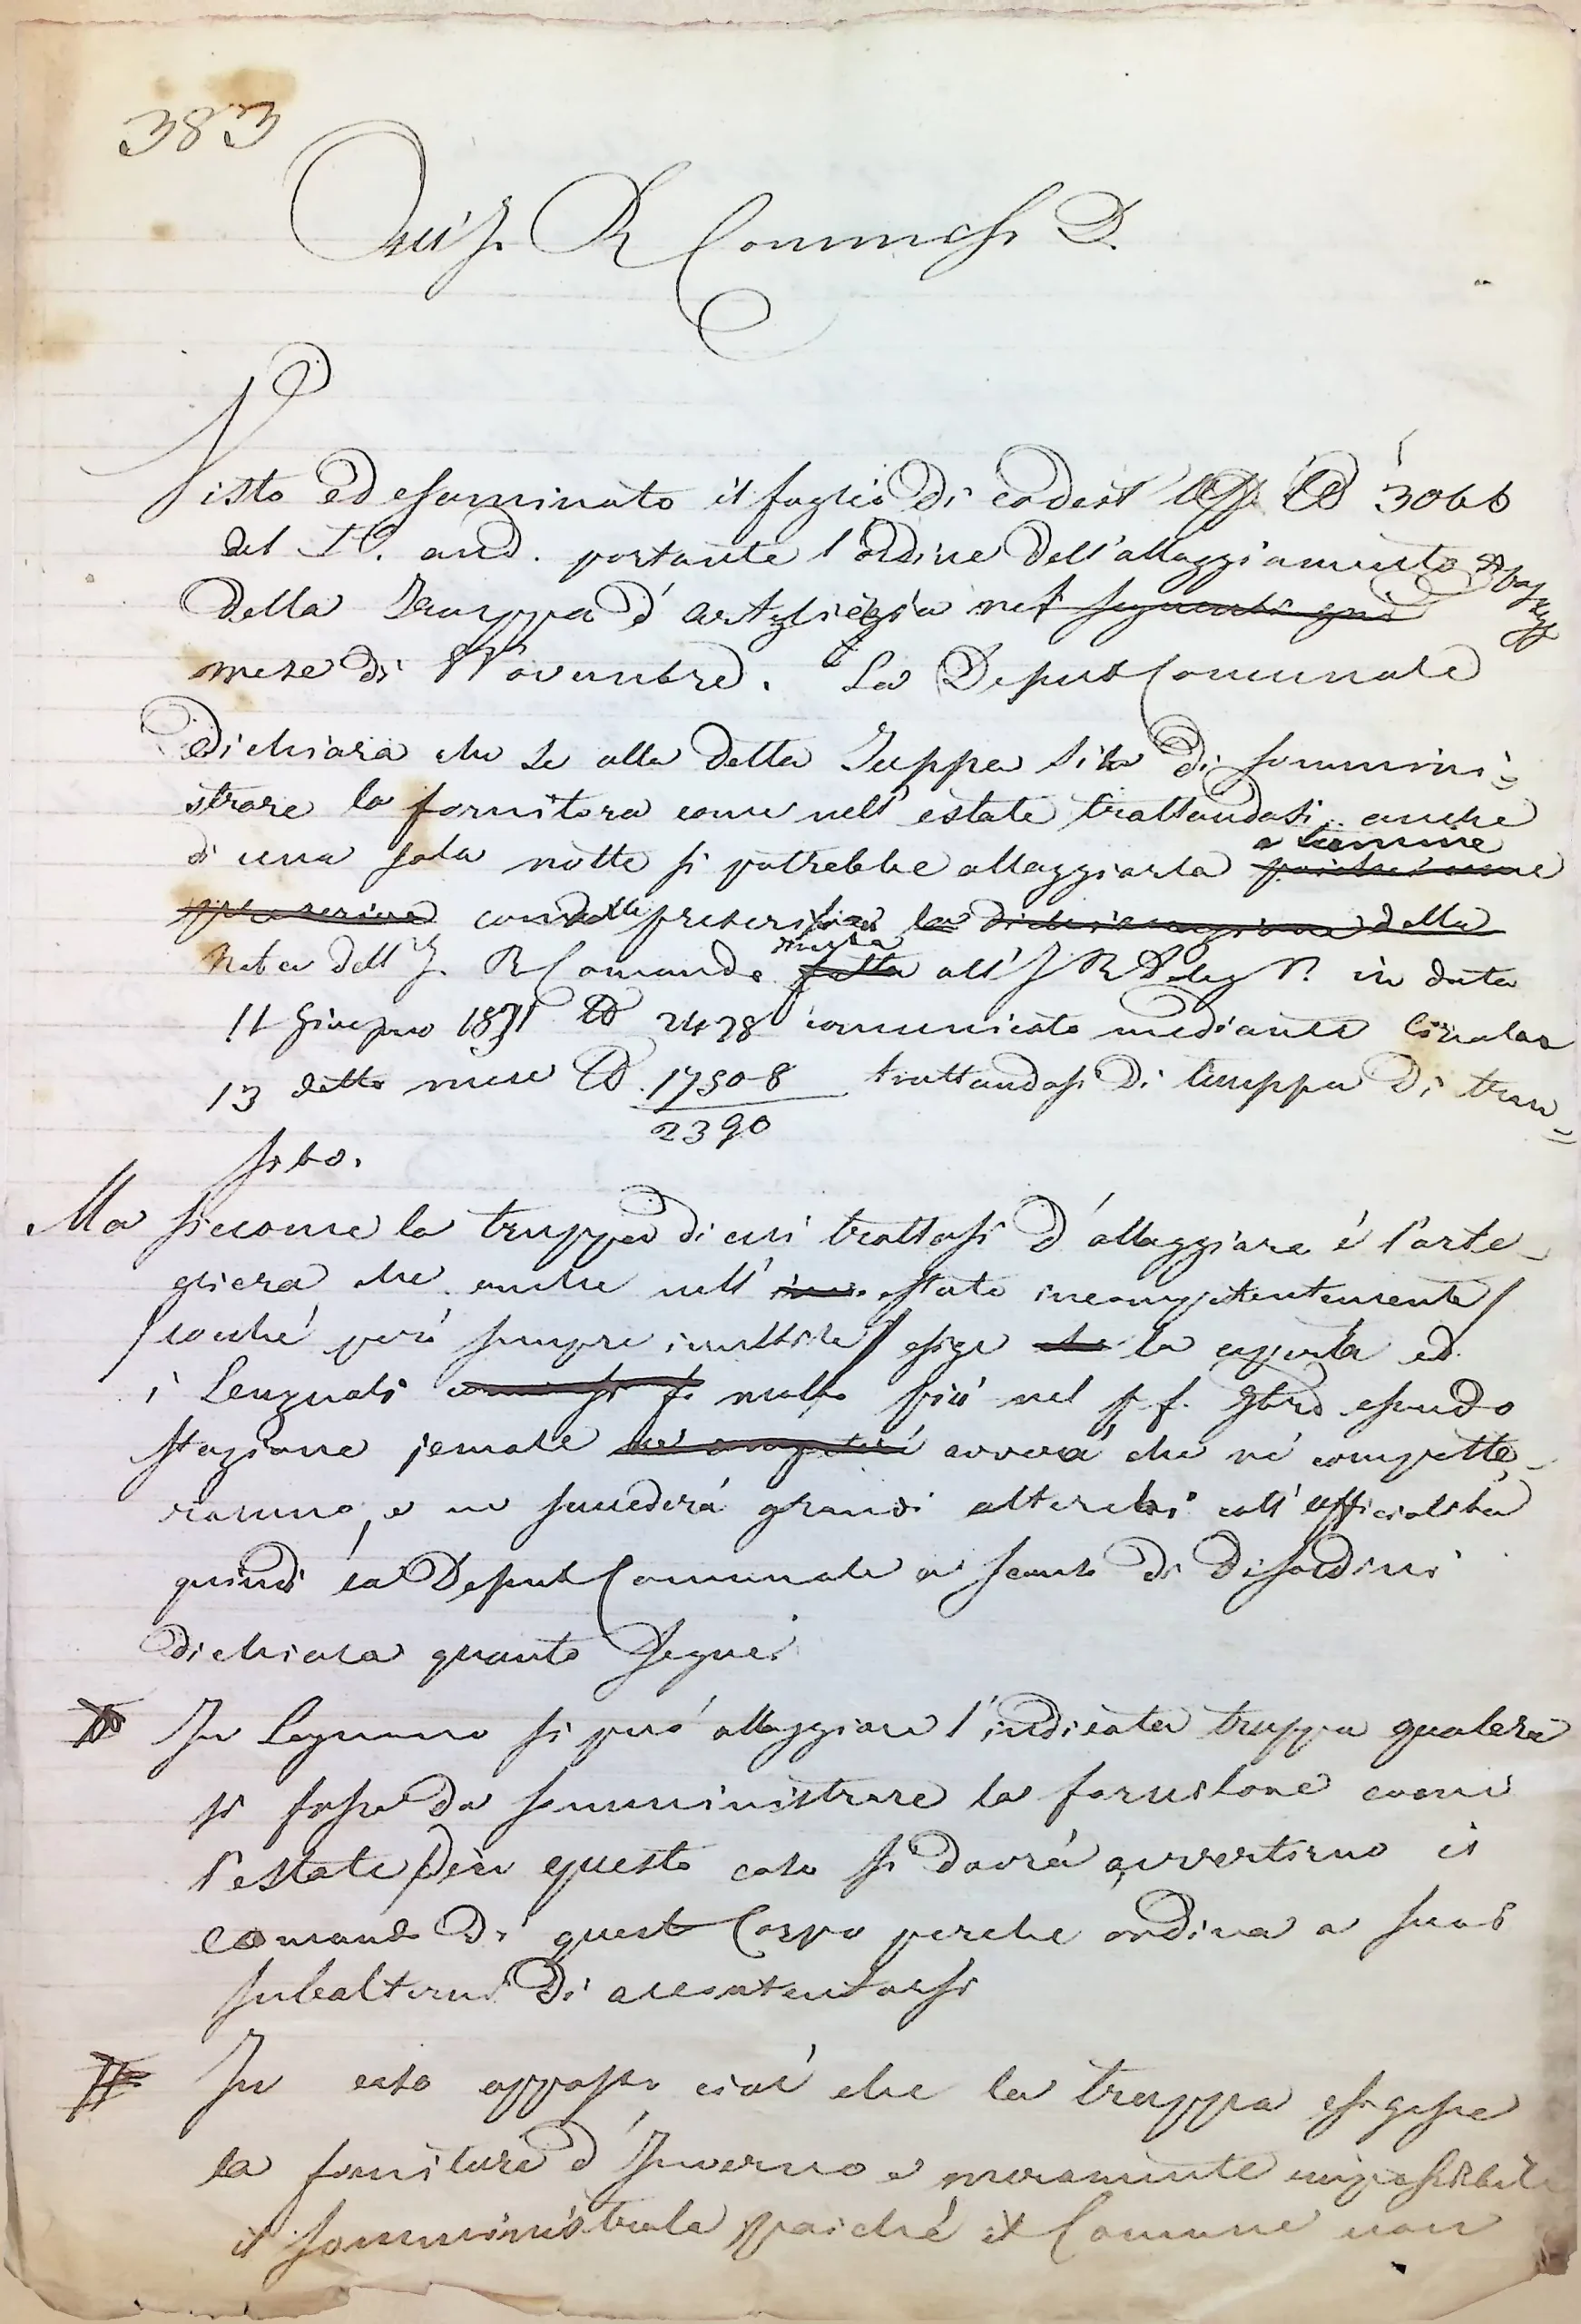 383
All'I. R. Commess. D.
Visto ed esaminato il foglio di codest' 3066
del 10. and. portante l'ordine dell'alloggiamento
della Truppa d'artiglieria nel seguenti
mese di Novembre. La Deput Comunale
dichiara che se alla detta Truppa si ha di sommini=
strare la fornitora come nell'estate trattandosi anche
di una sola notte si potrebbe alloggiarla a termine
prescrive la dichiarazione della
Nota dell'I. R Comando fatta all'I R Deleg P. in data
11 Giugno 1831 2478 comunicata mediante Circolar
13 detto mese 17508 trattandosi di truppa di tran=
2390
sito.
Ma siccome la truppa di cui trattasi d'alloggiare è l'arte-
glieria che anche nell' estate incompetentemente /
/ cosiché però sempre inutile / esige la coperta ed
i Lenzuoli molto più nel p. f. 9bre essendo
stagione jemale avverà che né compette-
ranno, e ne succederà grandi alterchi coll'ufficialità
quindi la Deput Comunale a scanso di disordini
dichiara quanto segue:
In Legnano si può alloggiare l'indicata truppa qualora
si fosse da somministrare la fornitore come
l'estate in questo caso si dovrà avvertirne il
comando di quest Corpo perche ordina a suoi
subalterni di accontentarsi
II In caso opposto cioè che la truppa esigesse
la forniture d'Inverno è meramente impossibile
il somministrala poiché il Comune non